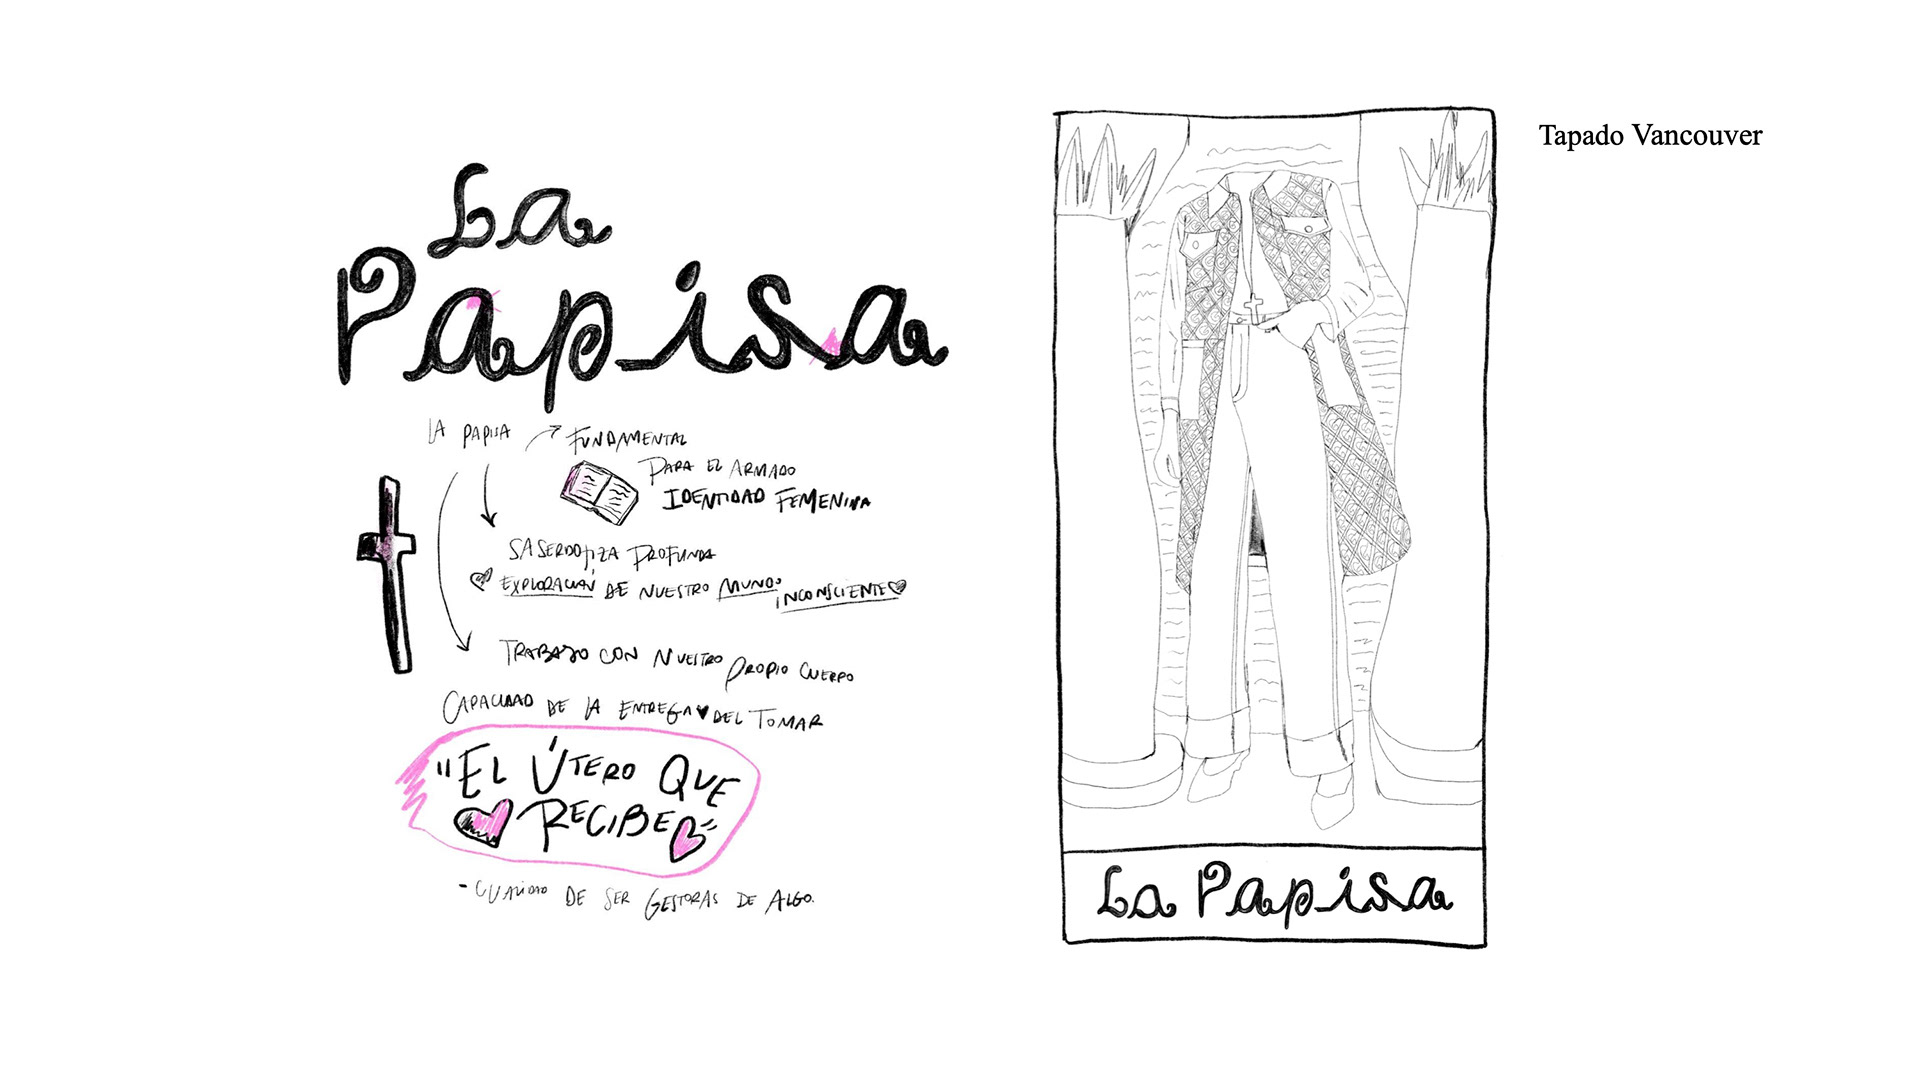 La
Papisa
LA PAPISA
FUNDAMENTAL
PARA EL ARMADO
IDENTIDAD FEMENINA
SASERDOTIZA PROFUNDA
EXPLORACIÓN DE NUESTRO MUNDO
INCONSCIENTE
TRABAJO CON NUESTRO PROPIO CUERPO
CAPACIDAD DE LA ENTREGA DEL TOMAR
"EL ÚTERO QUE
RECIBE"
- DE SER GESTORAS DE ALGO.
Tapado Vancouver
La Papisa